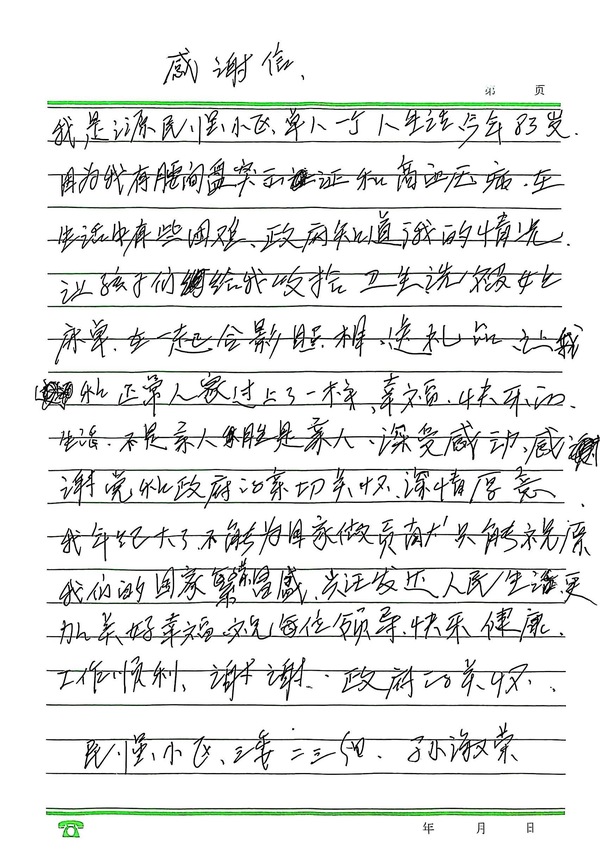 感谢信、
第 页
我是江源民小区、单人一个人生活今年83岁.
因为我有腰间盘突出证和高血压病.在
生活中有些困难、政府知道了我的情况.
让孩子们给我收拾卫生洗被
床单.在一起合影照相、送礼品让我
和正常人家过上了一样、幸福.快乐的.
生活.不是亲人胜是亲人、深受感动、感
谢党和政府的亲切关怀、深情厚意、
我年纪大了不能为国家做贡献只能祝愿
我们的国家繁荣昌盛、发达人民生活更
加美好幸福祝每位领导、快乐健康.
工作顺利、谢谢、政府的关怀.
民小区、三委二三组、孙淑荣
年 月 日